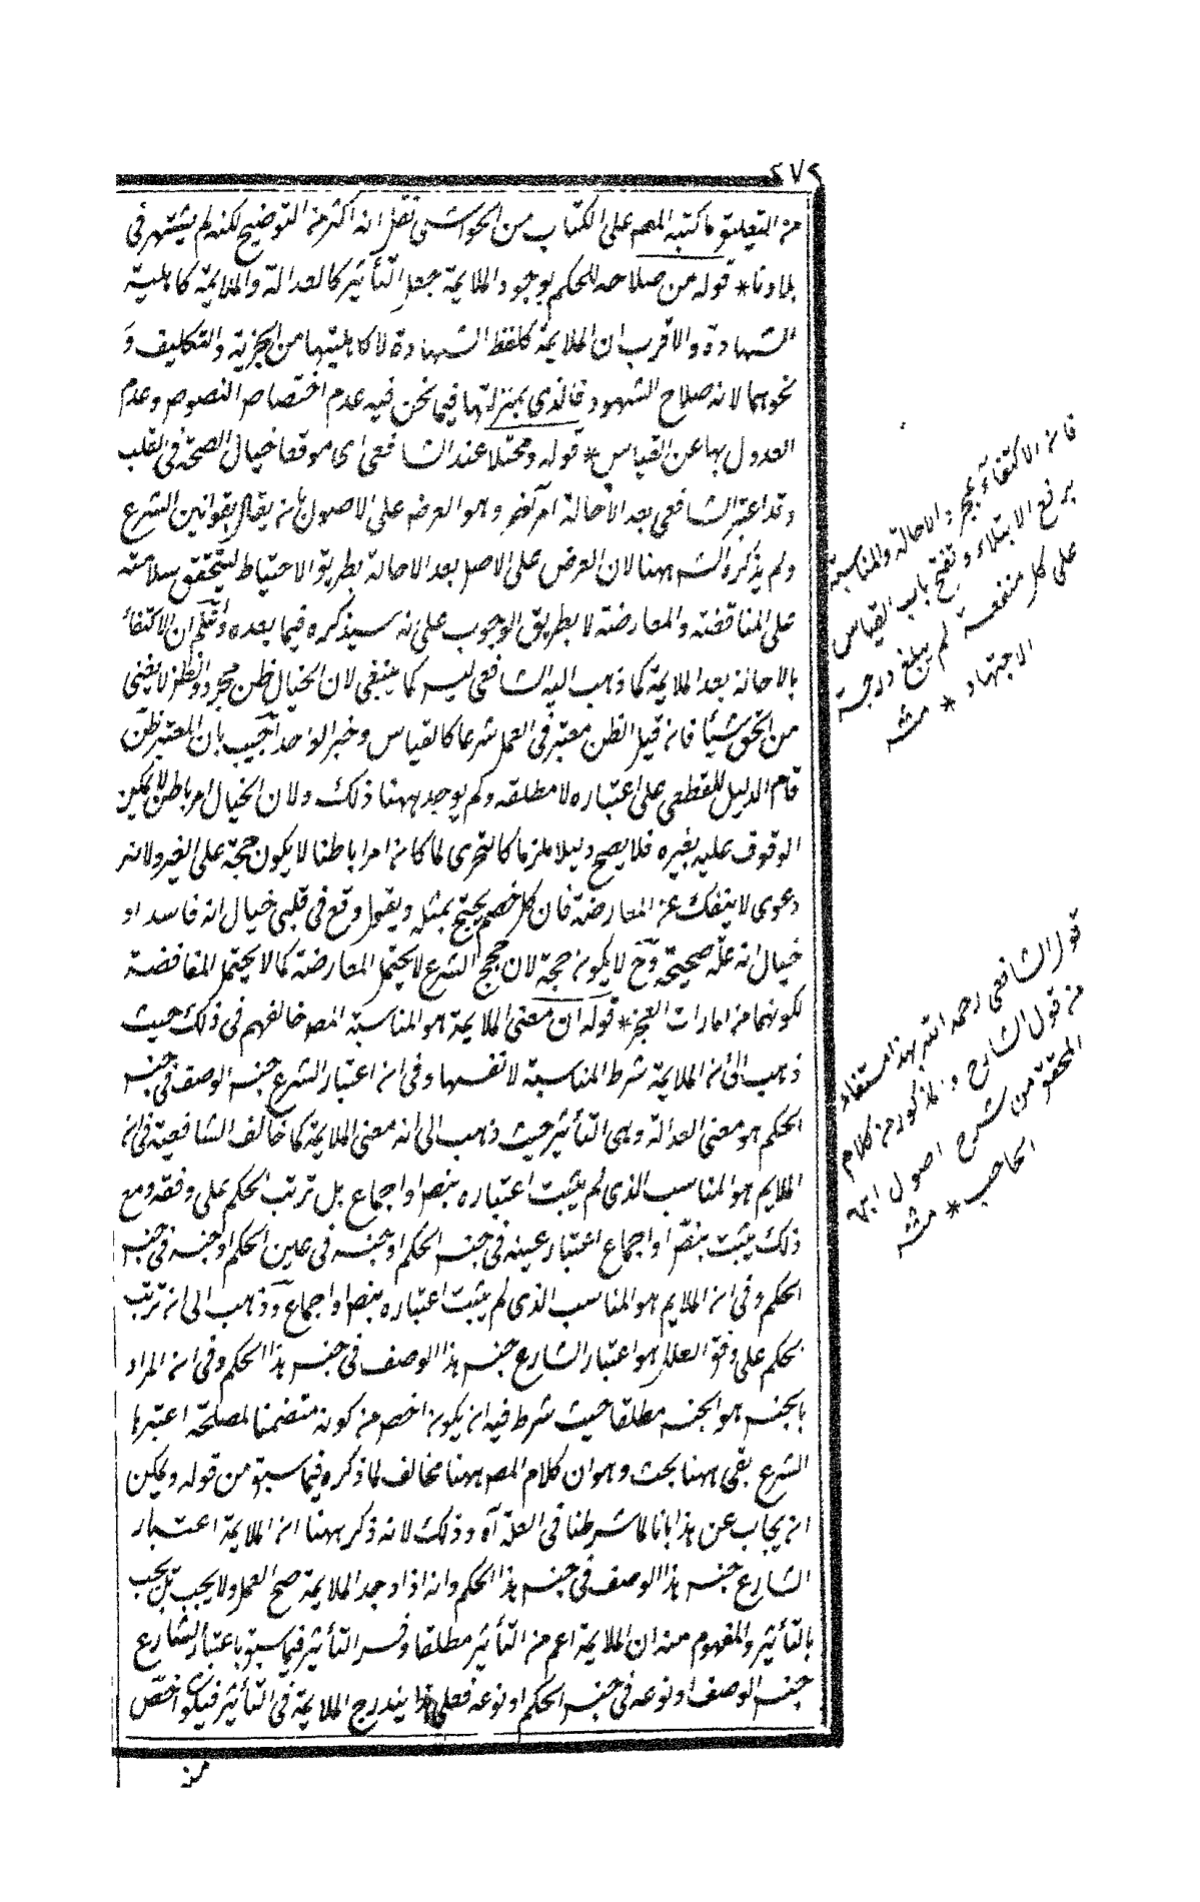 ٢٧٢
من التعليق ما كتبه المصم على الكتاب من الحواشى نقل انه اكثر من التوضيح لكنه لم يشتهر فى
بلادنا * قوله من صلاحه للحكم بوجود الملايمة جعل التأثير كالعدالة والملايمة كاهلية
الشهادة والاقرب ان الملايمة كلفظ الشهادة لا كاهليتها من الحرية والتكليف و
نحوهما لانه صلاح الشهود فالذى بمنزلتها فيما نحن فيه عدم اختصاص النصوص وعدم
العدول بها عن القياس * قوله ومخيلا عند الشافعى اى موقعا خيال الصحة فى القلب
وقد اعتبر الشافعى بعد الاخالة امر آخر وهو العرض على الاصول بان يقابل بقوانين الشرع
ولم يذكره الشه ههنا لان العرض على الاصل بعد الاخالة بطريق الاحتياط ليتحقق سلامته
على المناقضة والمعارضة لا بطريق الوجوب على انه سيذكره فيما بعده واعلم ان الاكتفاء
بالاخالة بعد الملايمة كما ذهب اليه الشافعى ليس كما ينبغى لان الخيال ظن مجرد والظن لا يغنى
من الحق شيأ فان قيل الظن معتبر فى العمل شرعا كالقياس وخبر الواحد اجيب بان المعتبر ظن
قام الدليل القطعى على اعتباره لا مطلقه ولم يوجد ههنا ذلك ولان الخيال امر باطن لا يمكن
الوقوف عليه بغيره فلا يصح دليلا ملزما كالتحرى لما كان امرا باطنا لا يكون حجة على الغير ولانه
دعوى لا ينفك عن المعارضة فان كل خصم يحتج بمثله ويقول وقع فى قلبى خيال انه فاسد او
خيال انه علة صحيحة وح لا يكون حجة لان حجج الشرع لا يحتمل المعارضة كما لا يحتمل المناقضة
لكونهما من امارات العجز * قوله ان معنى الملايمة هو المناسبة المصه خالفهم فى ذلك حيث
ذهب الى ان الملايمة شرط المناسبة لا نفسها وفى ان اعتبار الشرع جنس الوصف فى جنس
الحكم هو معنى العدالة وهى التأثير حيث ذهب الى انه معنى الملايمة كما خالف الشافعية فى ان
الملايم هو المناسب الذى لم يثبت اعتباره بنص او اجماع بل ترتب الحكم على وفقه ومع
ذلك يثبت بنص او اجماع اعتبار عينه فى جنس الحكم او جنسه فى عين الحكم او جنسه فى جنس
الحكم وفى ان الملايم هو المناسب الذى لم يثبت اعتباره بنص او اجماع وذهب الى ان ترتب
الحكم على وفق العلل هو اعتبار الشارع جنس هذا الوصف فى جنس هذا الحكم وفى ان المراد
بالجنس هو الجنس مطلقا حيث شرط فيه ان يكون اخص من كونه متضمنا لمصلحة اعتبرها
الشرع بقى ههنا بحث وهو ان كلام المصه ههنا مخالف لما ذكره فيما سبق من قوله ويمكن
ان يجاب عن هذا بانا لما شرطنا فى العلة آه وذلك لانه ذكر ههنا ان الملايمة اعتبار
الشارع جنس هذا الوصف فى جنس هذا الحكم وانه اذا وجد الملايمة صح العمل ولا يجب بل يجب
بالتأثير والمفهوم منه ان الملايمة اعم من التأثير مطلقا وفسر التأثير فيما سبق باعتبار الشارع
جنس الوصف او نوعه فى جنس الحكم او نوعه فعلى هذا يندرج الملايمة فى التأثير فيكون اخص
من
فان الاكتفاء بمجرد الاخالة والمناسبة
يرفع الابتلاء وتفتح باب القياس
على كل منفعة لم يبلغ درجة
الاجتهاد * منه
قول الشافعى رحمه الله بهذا مستفاد
من قول الشارح والمذكور من كلام
المحقق من شرح اصول ابن
الحاجب * منه